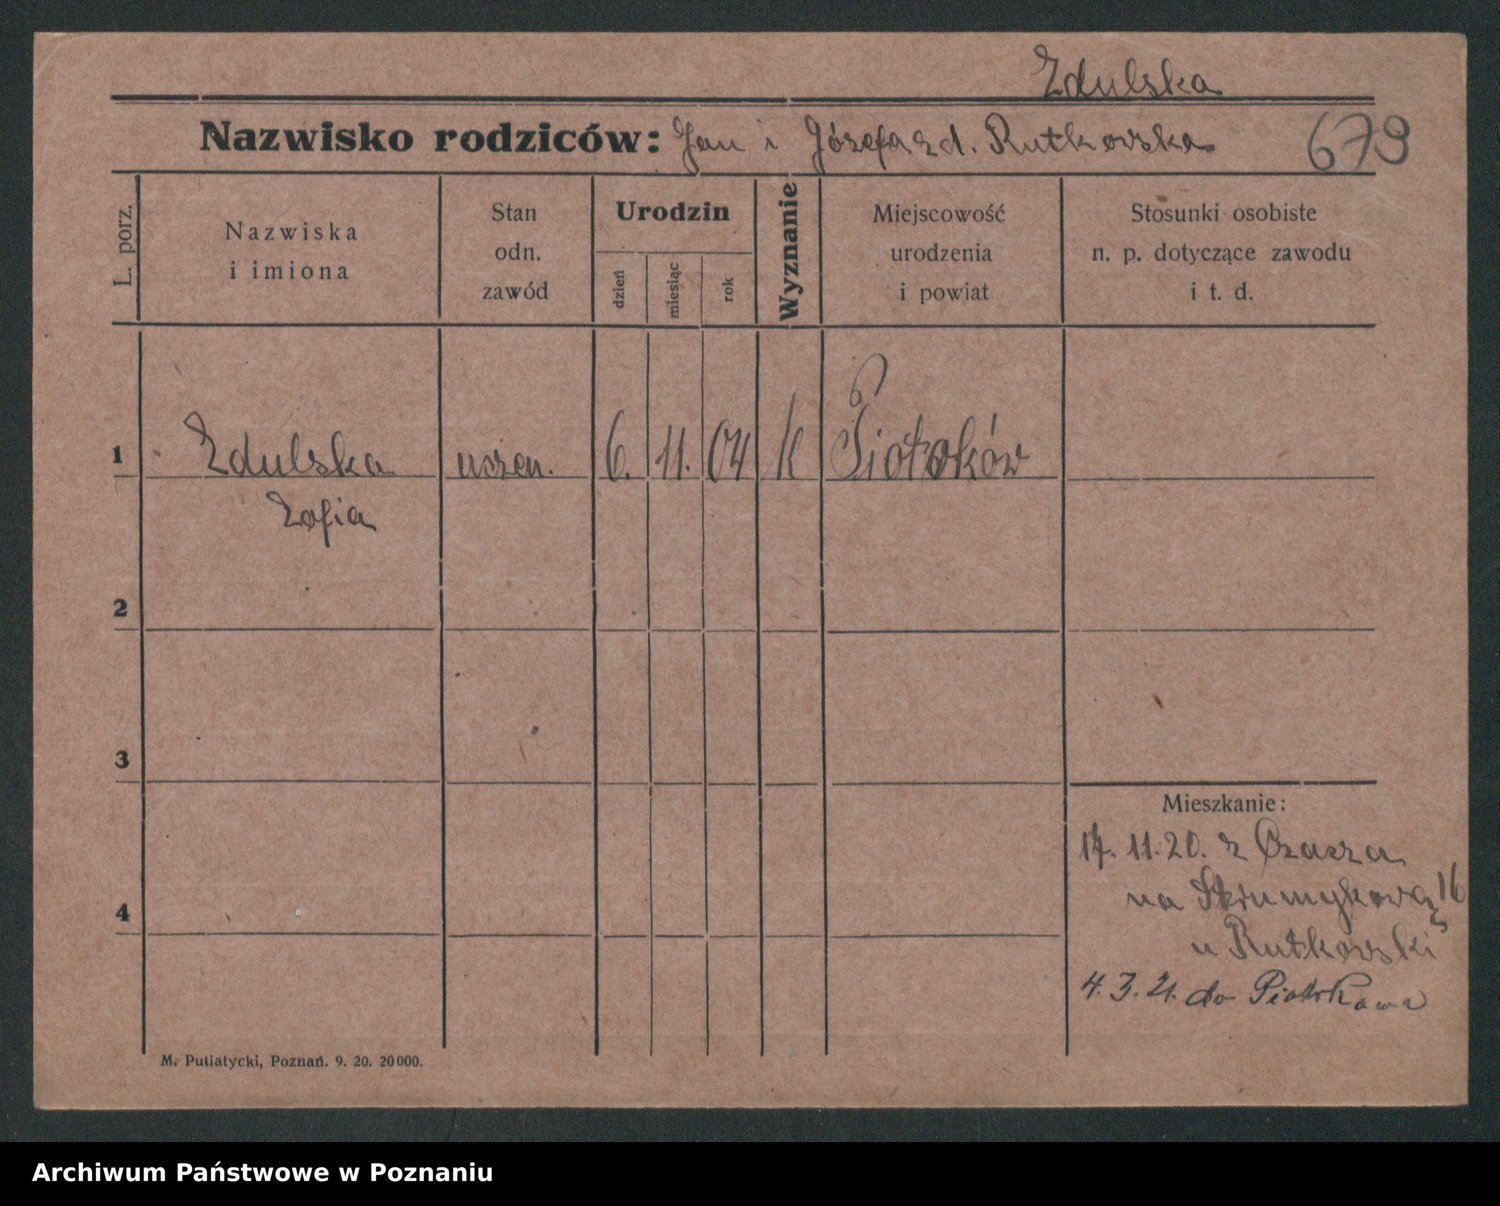 Zdulska
Nazwisko rodziców: Jan i Józefa zd. Rutkowska 679
L. porz.
Nazwiska
i imiona
Stan
odn.
zawód
Urodzin
dzień
miesiąc
rok
Wyznanie
Miejscowość
urodzenia
i powiat
Stosunki osobiste
n. p. dotyczące zawodu
i t. d.
1 Zdulska uczen. 6. 11. 04 K Piotrków
Zofia
2
3
Mieszkanie:
17. 11. 20. z Czacza
na 16
4
u Rutkowski
4. 3. 21. do Piotrkowa
M. Putiatycki, Poznań. 9. 20. 20000.
Archiwum Państwowe w Poznaniu